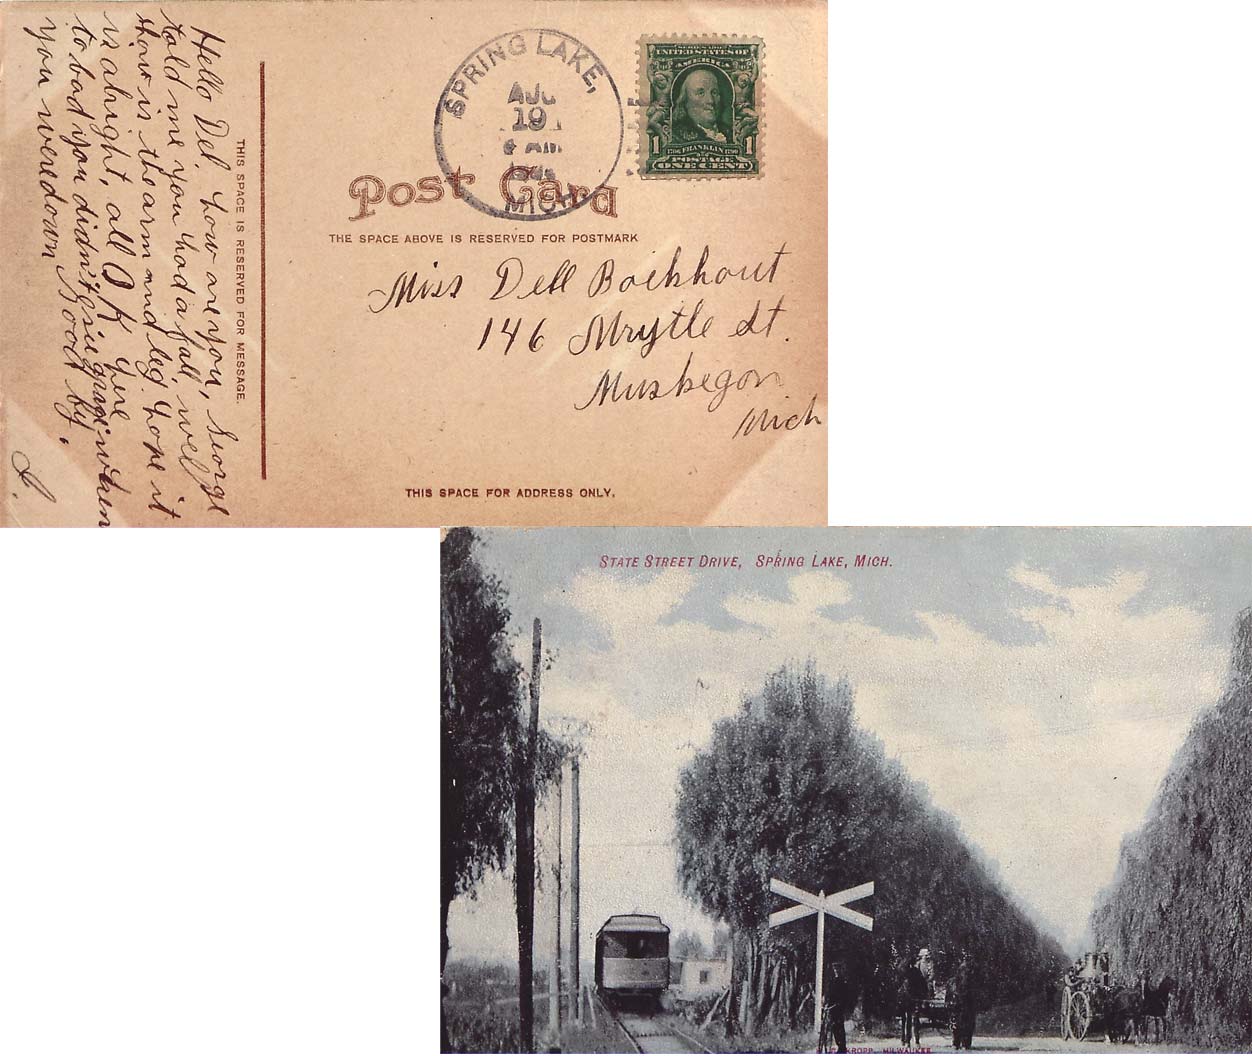 Hello Del. how are you, George
told me you had a fall, well
how is the arm and leg. hope it
is alright, all O K here
to bad you didn't gone when
you were down Good by.
J.
THIS SPACE IS RESERVED FOR MESSAGE.
SPRING LAKE,
AUG
19
AM
MICH
SERIES 1902
UNITED STATES OF
AMERICA
1 1706 FRANKLIN 1790 1
POSTAGE
ONE CENT
Post Card
THE SPACE ABOVE IS RESERVED FOR POSTMARK
Miss Dell Boekhout
146 Mrytle St.
Muskegon
Mich
THIS SPACE FOR ADDRESS ONLY.
STATE STREET DRIVE, SPRING LAKE, MICH.
KROPP, MILWAUKEE